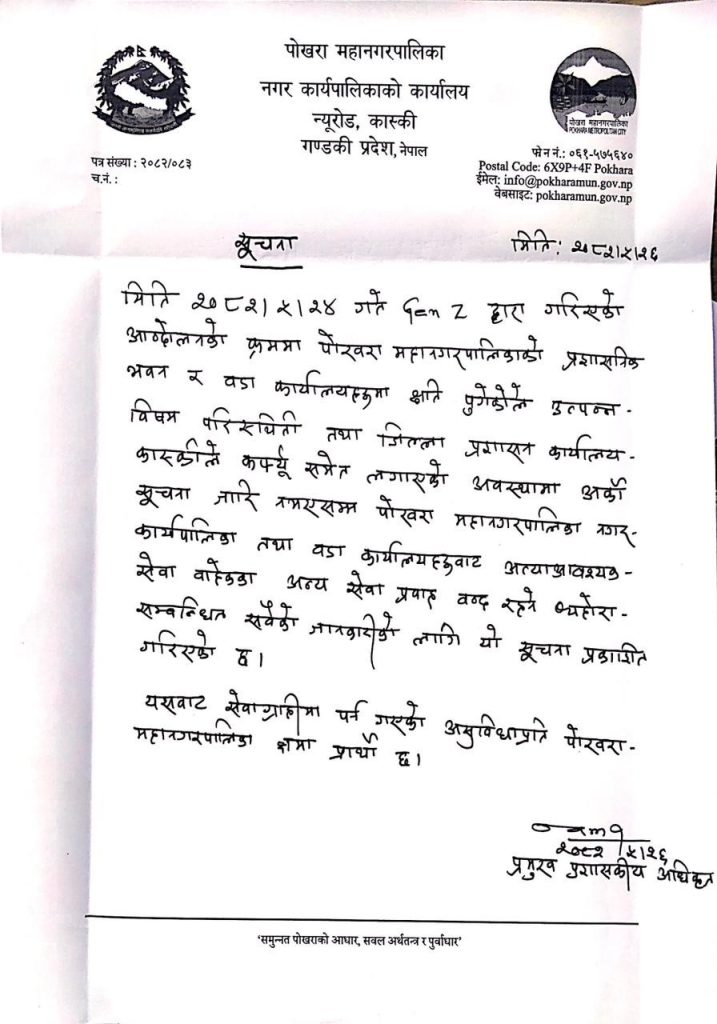 पोखरा महानगरपालिका
नगर कार्यपालिकाको कार्यालय
न्यूरोड, कास्की
गण्डकी प्रदेश, नेपाल
पोखरा महानगरपालिका
POKHARA METROPOLITAN CITY
पत्र संख्या : २०८२/०८३
च.नं. :
फोन नं.: ०६१-५७५६४०
Postal Code: 6X9P+4F Pokhara
ईमेल: info@pokharamun.gov.np
वेबसाइट: pokharamun.gov.np
सूचना
मिति: २०८२।५।२६
मिति २०८२।५।२४ गते Gen Z द्वारा गरिएको
आन्दोलनको क्रममा पोखरा महानगरपालिकाको प्रशासनिक
भवन र वडा कार्यालयहरुमा क्षति पुगेकोले उत्पन्न-
विषम परिस्थिती तथा जिल्ला प्रशासन कार्यालय-
कास्कीले कर्फ्यू समेत लगाएको अवस्थामा अर्को
सूचना जारि नभएसम्म पोखरा महानगरपालिका नगर-
कार्यपालिका तथा वडा कार्यालयहरुवाट अत्याआवश्यक-
सेवा वाहेकका अन्य सेवा प्रवाह वन्द रहने व्यहोरा-
सम्वन्धित सवैको जानकारीको लागि यो सूचना प्रकाशित
गरिएको छ।
यसवाट सेवाग्राहीमा पर्न गएको असुविधाप्रति पोखरा-
महानगरपालिका क्षमा प्रार्थी छ।
२०८२।५।२६
प्रमुख प्रशासकीय अधिकृत
'समुन्नत पोखराको आधार, सवल अर्थतन्त्र र पुर्वाधार'